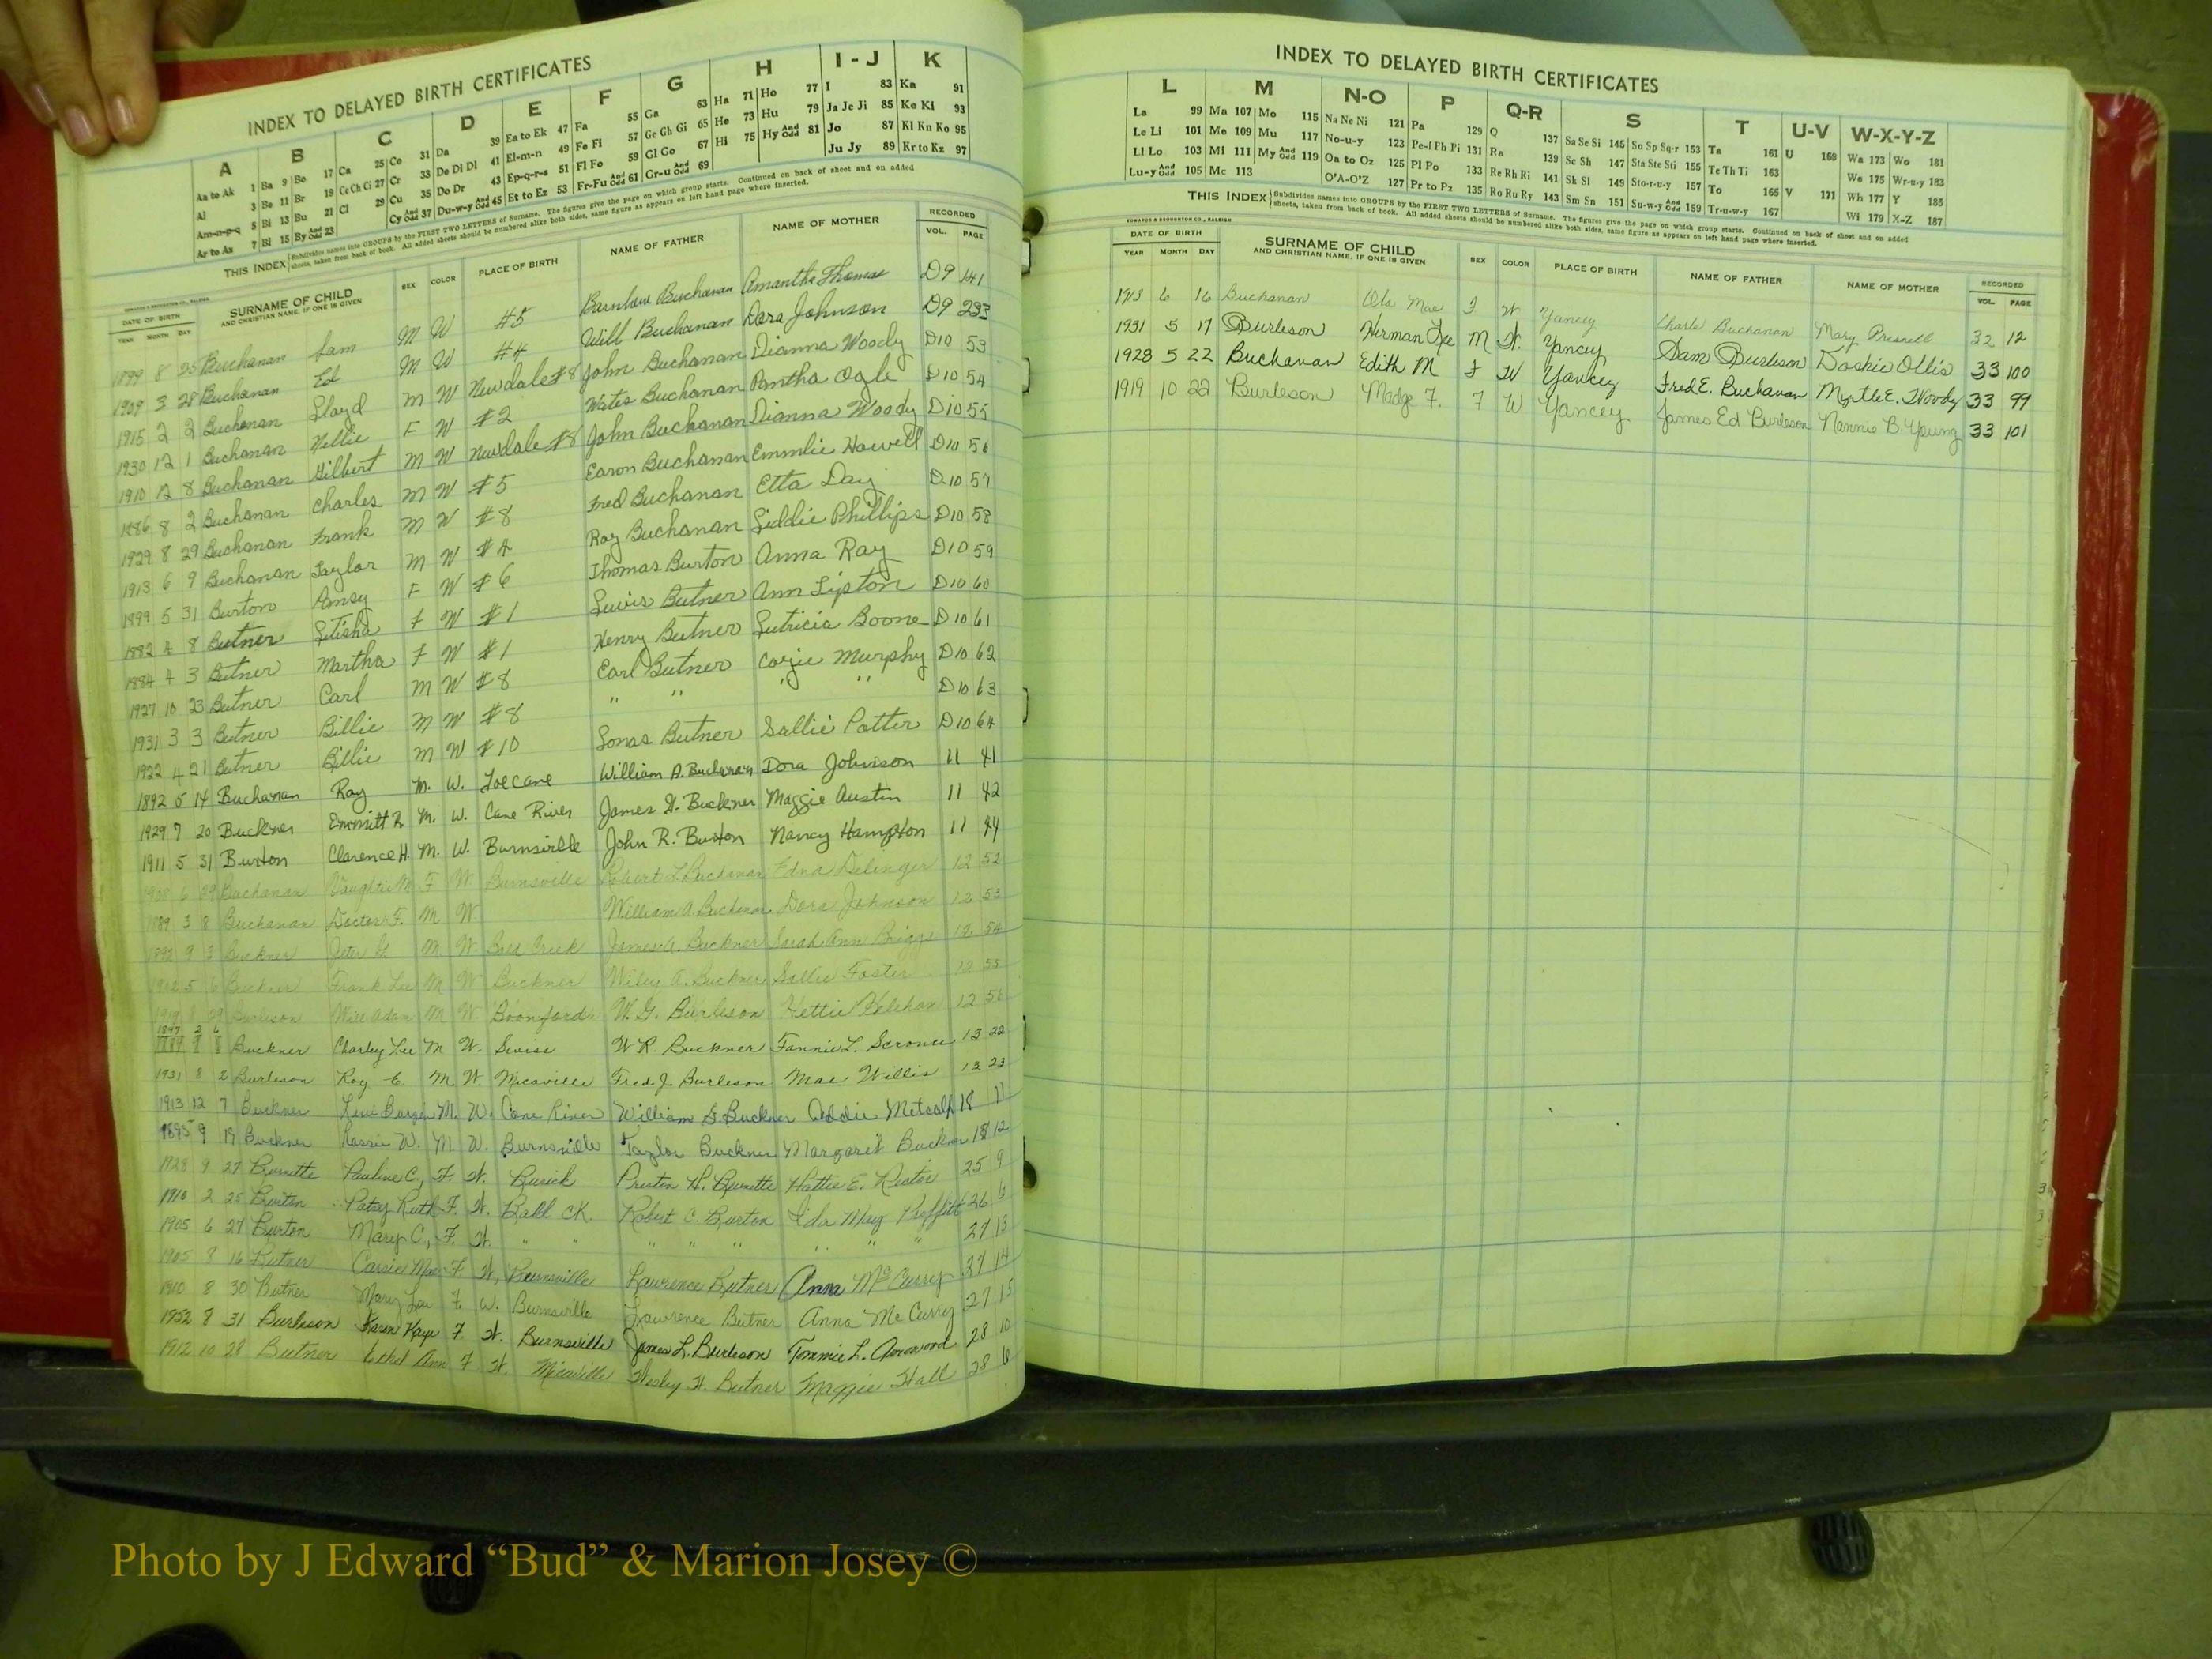 INDEX TO DELAYED BIRTH CERTIFICATES
A B C D E F G H I - J K
Aa to Ak 1 Ba 9 Bo 17 Ca 25 Co 31 Da 39 Ea to Ek 47 Fa 55 Ga 63 Ha 71 Ho 77 I 83 Ka 91
Al 3 Be 11 Br 19 Ce Ch Ci 27 Cr 33 De Di Dl 41 El-m-n 49 Fe Fi 57 Ge Gh Gi 65 He 73 Hu 79 Ja Je Ji 85 Ke Ki 93
Am-n-p-q 5 Bi 13 Bu 21 Cl 29 Cu 35 Do Dr 43 Ep-q-r-s 51 Fl Fo 59 Gl Go 67 Hi 75 Hy And Odd 81 Jo 87 Kl Kn Ko 95
Ar to Az 7 Bl 15 By And Odd 23 Cy And Odd 37 Du-w-y And Odd 45 Et to Ez 53 Fr-Fu And Odd 61 Gr-u And Odd 69 Ju Jy 89 Kr to Kz 97
THIS INDEX Subdivides names into GROUPS by the FIRST TWO LETTERS of Surname. The figures give the page on which group starts. Continued on back of sheet and on added
sheets, taken from back of book. All added sheets should be numbered alike both sides, same figure as appears on left hand page where inserted.
DATE OF BIRTH SURNAME OF CHILD SEX COLOR PLACE OF BIRTH NAME OF FATHER NAME OF MOTHER RECORDED
YEAR MONTH DAY AND CHRISTIAN NAME, IF ONE IS GIVEN VOL. PAGE
1899 8 25 Buchanan Sam M W #5 Buchanan Amantha Thomas D9 141
1909 3 28 Buchanan Ed M W #4 Will Buchanan Dora Johnson D9 233
1915 2 2 Buchanan Lloyd M W Newdale #8 John Buchanan Dianna Woody D10 53
1930 12 1 Buchanan Nellie F W #2 Wates Buchanan Pantha Ogle D10 54
1910 12 8 Buchanan Gilbert M W Newdale #8 John Buchanan Dianna Woody D10 55
1886 8 2 Buchanan Charles M W #5 Earon Buchanan Emmlie Howell D10 56
1929 8 29 Buchanan Frank M W #8 Fred Buchanan Etta Day D10 57
1913 6 9 Buchanan Taylor M W #4 Roy Buchanan Liddie Phillips D10 58
1899 5 31 Burton F W #6 Thomas Burton Anna Ray D10 59
1882 4 8 Butner Letisha F W #1 Lewis Butner Ann Lipton D10 60
1884 4 3 Butner Martha F W #1 Henry Butner Lutricia Boone D10 61
1927 10 23 Butner Carl M W #8 Carl Butner Murphy D10 62
1931 3 3 Butner Billie M W #8 " " " " D10 63
1922 4 21 Butner Billie M W #10 Butner Sallie Potter D10 64
1892 5 14 Buchanan Roy M. W. Toecane William A. Buchanan Dora Johnson 11 41
1929 7 20 Buckner Emmitt R M. W. Cane River James H. Buckner Maggie Austin 11 42
1911 5 31 Burton Clarence H. M. W. Burnsville John R. Burton Nancy Hampton 11 44
6 29 Buchanan F W. Burnsville Robert L. Buchanan Edna Delinger 12 52
1889 3 8 Buchanan Doctor F. M W William A. Buchanan Dora Johnson 12 53
9 3 Buckner M W Bald Creek James A. Buckner Sarah Ann Briggs 12 54
5 6 Buckner Frank Lee M W Buckner Wiley A. Buckner Sallie Foster 12 55
29 Burleson Will Adam M W. Boonford W. G. Burleson Hettie 12 56
1889 8 8 Buckner Charley Lee M W. Swiss W R. Buckner Fannie L. 13 22
1931 8 2 Burleson Roy E. M W. Micaville Fred. J. Burleson Mae Willis 13 23
1913 12 7 Buckner M. W. Cane River William G. Buckner Addie Metcalf 18 11
1895 9 19 Buckner W. M. W. Burnsville Taylor Buckner Margaret Buckner 18 12
1928 9 27 Burnette Pauline C, F. W. Busick Preston H. Burnette Hattie E. Rector 25 9
1910 2 25 Burton Patsy Ruth F. W. Ball Ck. Robert C. Burton Ida May Proffitt 26 6
1905 6 27 Burton Mary C, F. W. " " " " " " " " 27 13
1905 8 16 Butner Carrie Mae F W, Burnsville Lawrence Butner Anna McCurry 27 14
1910 8 30 Butner Mary Lou F. W. Burnsville Lawrence Butner Anna McCurry 27 15
1952 8 31 Burleson Karen Kaye F. W. Burnsville James L. Burleson Tommie L. Arrowood 28 10
1912 10 28 Butner Ethel Ann F W. Micaville Wesley H. Butner Maggie Hall 28 6
INDEX TO DELAYED BIRTH CERTIFICATES
L M N-O P Q-R S T U-V W-X-Y-Z
La 99 Ma 107 Mo 115 Na Ne Ni 121 Pa 129 Q 137 Sa Se Si 145 So Sp Sq-r 153 Ta 161 U 169 Wa 173 Wo 181
Le Li 101 Me 109 Mu 117 No-u-y 123 Pe-f Ph Pi 131 Ra 139 Sc Sh 147 Sta Ste Sti 155 Te Th Ti 163 We 175 Wr-u-y 183
Ll Lo 103 Mi 111 My And Odd 119 Oa to Oz 125 Pl Po 133 Re Rh Ri 141 Sk Sl 149 Sto-r-u-y 157 To 165 V 171 Wh 177 Y 185
Lu-y And Odd 105 Mc 113 O'A-O'Z 127 Pr to Pz 135 Ro Ru Ry 143 Sm Sn 151 Su-w-y And Odd 159 Tr-u-w-y 167 Wi 179 X-Z 187
THIS INDEX Subdivides names into GROUPS by the FIRST TWO LETTERS of Surname. The figures give the page on which group starts. Continued on back of sheet and on added
sheets, taken from back of book. All added sheets should be numbered alike both sides, same figure as appears on left hand page where inserted.
EDWARDS & BROUGHTON CO., RALEIGH
DATE OF BIRTH SURNAME OF CHILD SEX COLOR PLACE OF BIRTH NAME OF FATHER NAME OF MOTHER RECORDED
YEAR MONTH DAY AND CHRISTIAN NAME, IF ONE IS GIVEN VOL. PAGE
1913 6 16 Buchanan Ola Mae F W Yancey Charle Buchanan Mary Presnell 32 12
1931 5 17 Burleson Herman Lee M W. Yancey Sam Burleson Doskie Ollis 33 100
1928 5 22 Buchanan Edith M F W Yancey Fred E. Buchanan Myrtle E. Woody 33 99
1919 10 22 Burleson Madge F. F W Yancey James Ed Burleson Nannie B. Young 33 101
Photo by J Edward “Bud” & Marion Josey ©